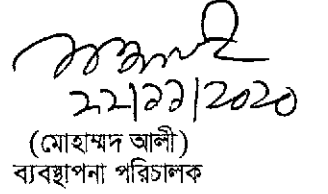 ২২|১১|২০২০
(মোহাম্মদ আলী)
ব্যবস্থাপনা পরিচালক